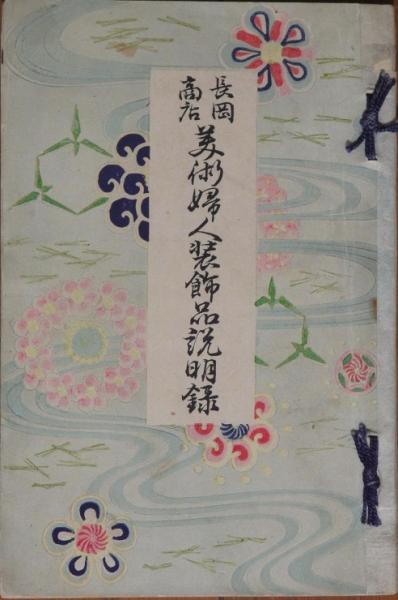 長岡
商店
美術婦人装飾品説明録